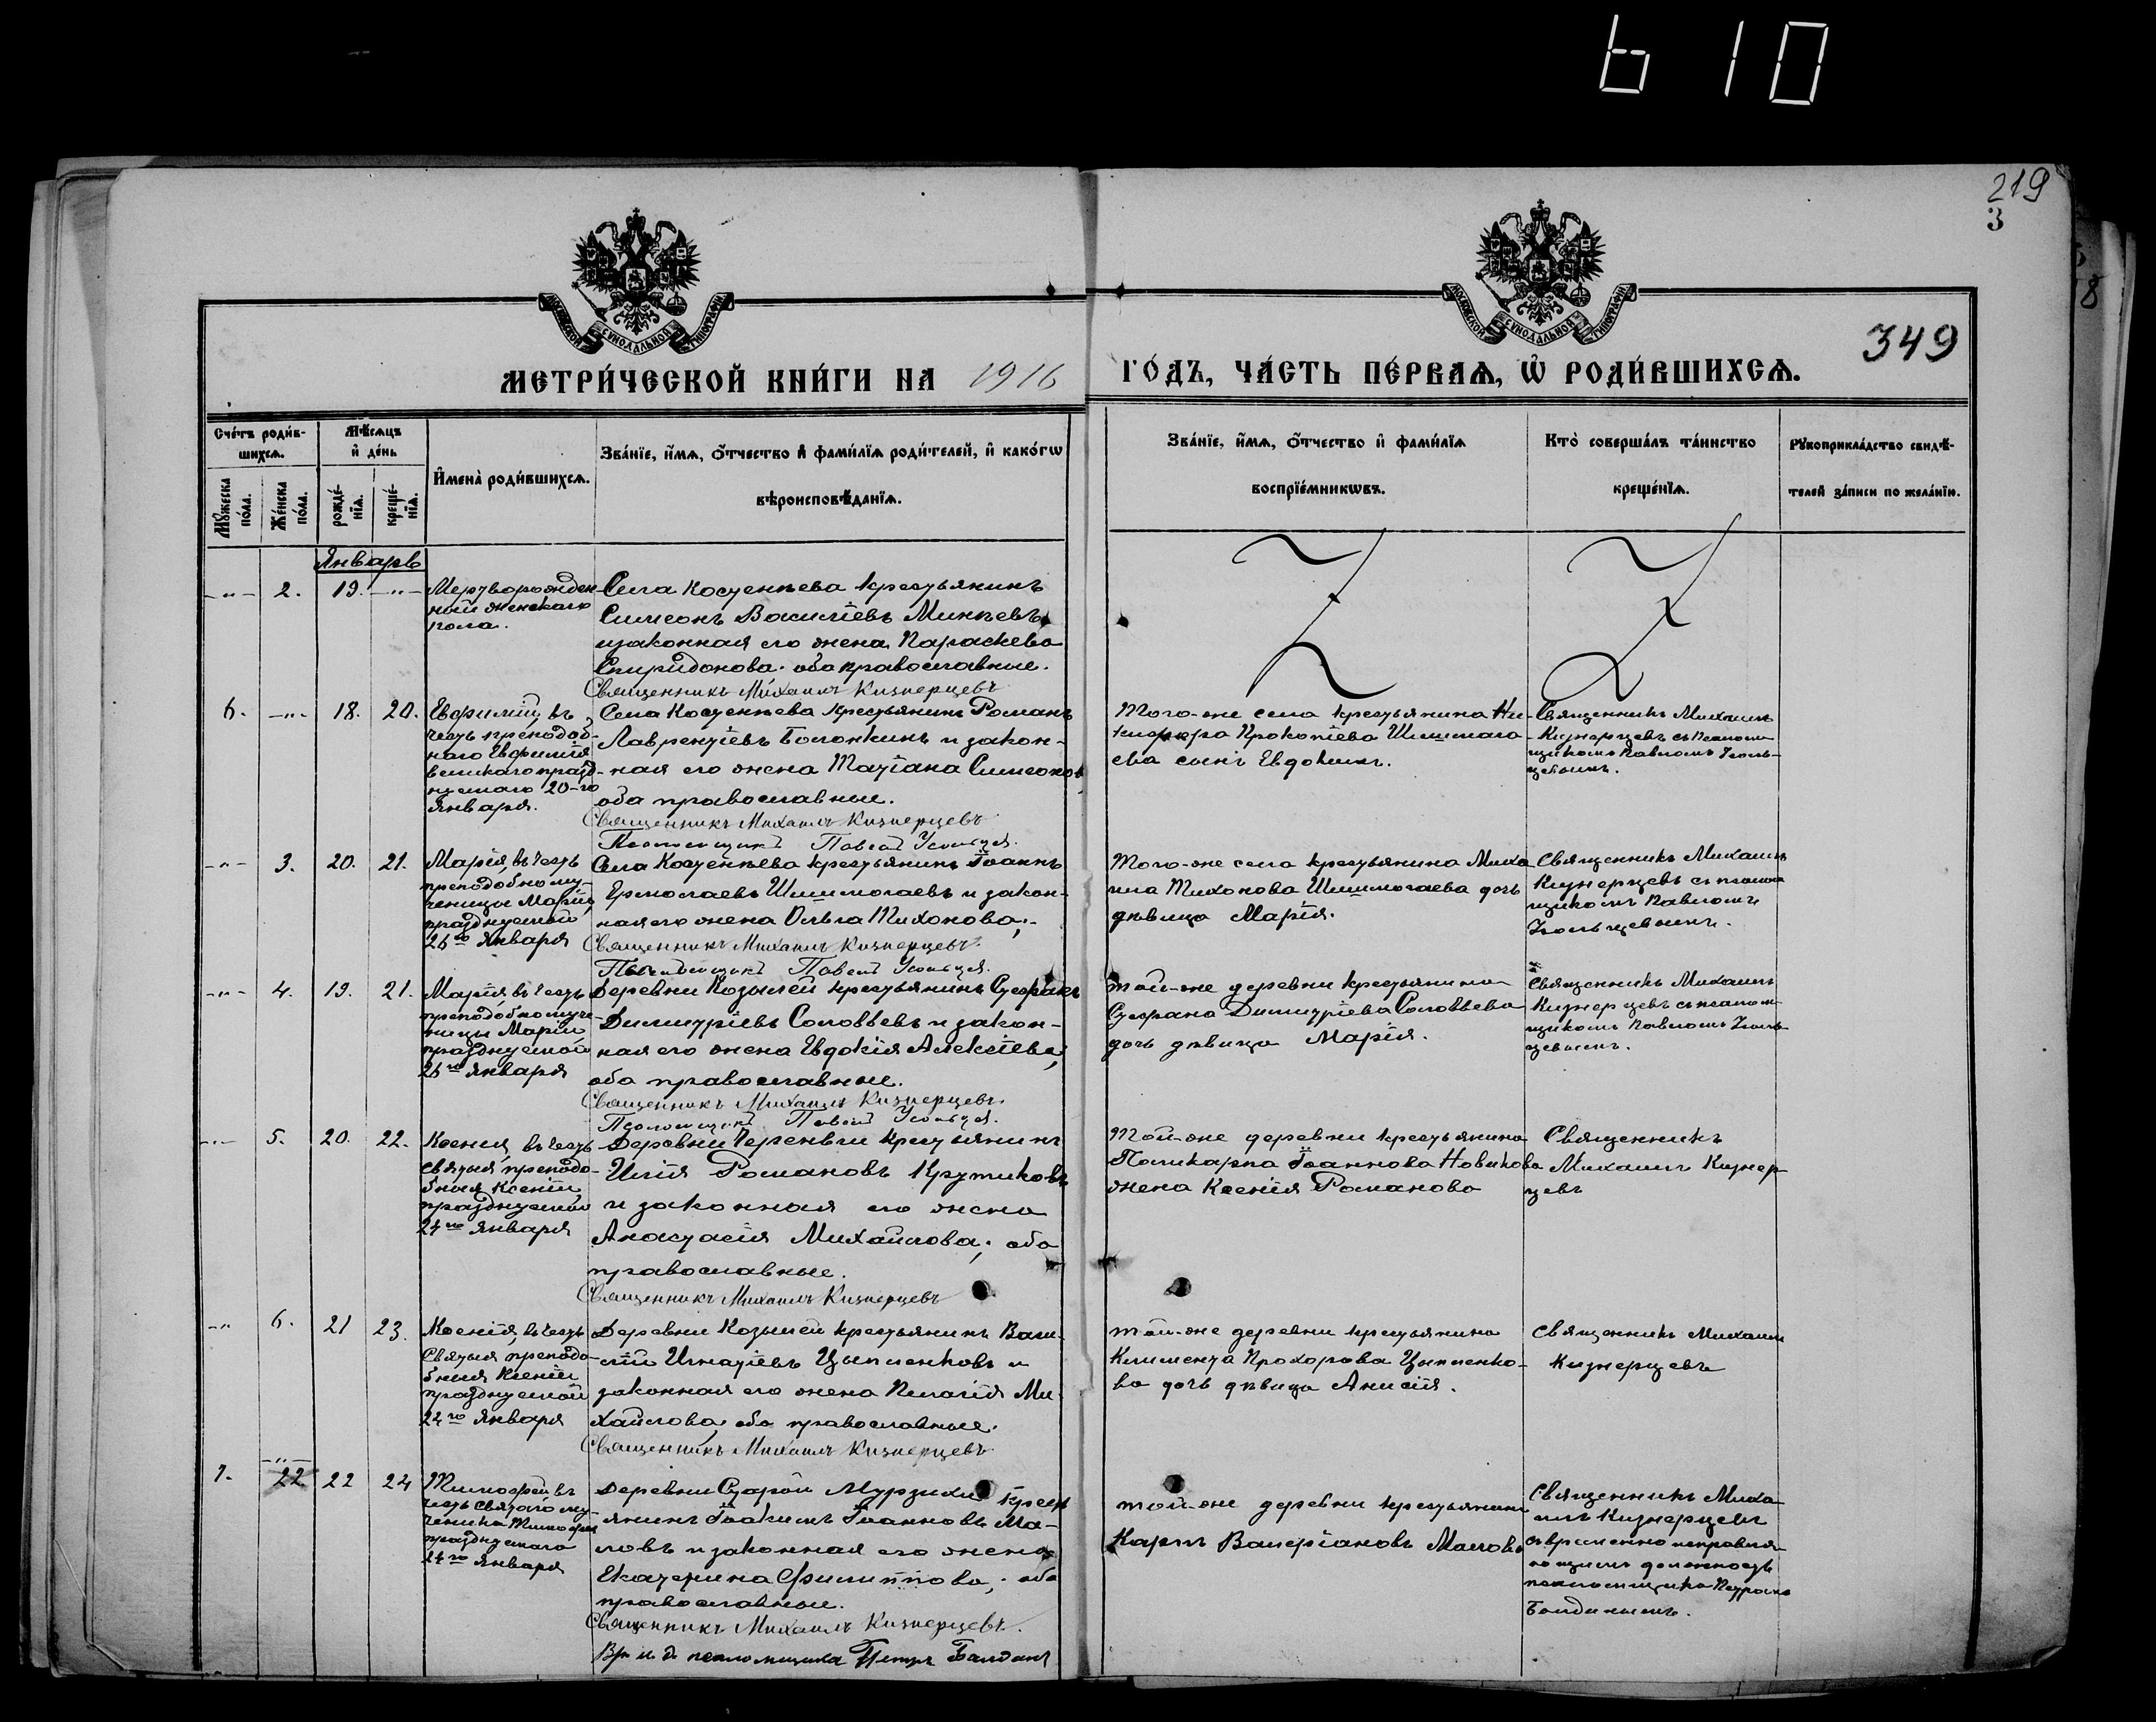 610
219
3
8
МОСКОВСКОЙ СѴНОДАЛЬНОЙ ТИПОГРАФІИ
МОСКОВСКОЙ СѴНОДАЛЬНОЙ ТИПОГРАФІИ
349
МЕТРИ́ЧЕСКОЙ КНИ́ГИ НА 1916 ГО́ДЪ, ЧА́СТЬ ПЕ́РВАѦ, Ѡ҆ РОДИ́ВШИХСѦ.
Сче́тъ роди́в-
шихсѧ.
Мꙋ́жеска по́ла.
Же́нска по́ла.
Мѣ́сѧцъ
и҆ де́нь
рожде́-
нїѧ.
креще́-
нїѧ.
И҆мена̀ роди́вшихсѧ.
Зва́нїе, и҆́мѧ, ѻ҆́тчество и҆ фамі́лїѧ роди́телей, и҆ како́гѡ
вѣроисповѣ́данїѧ.
Зва́нїе, и҆́мѧ, ѻ҆́тчество и҆ фамі́лїѧ
воспрїе́мникѡвъ.
Кто̀ соверша́лъ та́инство
креще́нїѧ.
Рꙋкоприкла́дство свидѣ́-
телей за́писи по жела́нїю.
Январь
-"- 2. 19. -"-
Мертворожден-
ный женскаго
пола.
Села Костенеева крестьянинъ
Симеонъ Васильевъ Минѣевъ
и законная его жена Параскева
Спиридонова. оба православные.
Священникъ Михаилъ Кизнерцевъ
6. -"- 18. 20.
Евфимій, въ
честь преподоб-
наго Евфимія
великаго празд-
нуемаго 20-го
Января.
Села Костенеева крестьянинъ Романъ
Лаврентіевъ Болонкинъ и закон-
ная его жена Татіана Симеонов
оба православные.
Священникъ Михаилъ Кизнерцевъ
Псаломщикъ Павелъ Усольцев.
Того-же села крестьянина Ни-
кифора Прокопіева Шишмага-
ева сынъ Евдокимъ.
Священникъ Михаилъ
Кизнерцевъ съ псалом-
щикомъ Павломъ Усоль-
цевымъ.
-"- 3. 20. 21.
Марія, въ честь
преподобному-
ченицы Маріи,
празднуемой
26го Января
Села Костенеева крестьянинъ Іоаннъ
Ермолаевъ Шишмагаевъ и закон-
ная его жена Ольга Тихонова;
Священникъ Михаилъ Кизнерцевъ.
Псаломщикъ Павелъ Усольцев.
Того-же села крестьянина Миха
ила Тихонова Шишмагаева дочь
дѣвица Марія.
Священникъ Михаилъ
Кизнерцевъ съ псалом
щикомъ Павломъ
Усольцевымъ.
-"- 4. 19. 21.
Марія въ честь
преподобномуче-
ницы Маріи
празднуемой
26го Января
Деревни Козылей крестьянинъ Стефанъ
Димитріевъ Соловьевъ и закон-
ная его жена Евдокія Алексіева;
оба православные.
Священникъ Михаилъ Кизнерцевъ.
Псаломщикъ Павелъ Усольцев.
той-же деревни крестьянина
Стефана Димитріева Соловьева
дочь дѣвица Марія.
Священникъ Михаилъ
Кизнерцевъ съ псалом-
щикомъ Павломъ Усоль-
цевымъ.
-"- 5. 20. 22.
Ксенія, въ честь
Святыя преподо-
бныя Ксеніи
празднуемой
24го Января
Деревни крестьянинъ
Илія Романовъ Крутиковъ
и законная его жена
Анастасія Михайлова; оба
православные.
Священникъ Михаилъ Кизнерцевъ
Той-же деревни крестьянина
Поликарпа Іоаннова Новикова
жена Ксенія Романова
Священникъ
Михаилъ Кизнер-
цевъ
-"- 6. 21 23.
Ксенія, въ честь
Святыя преподо-
бныя Ксеніи
празднуемой
24го Января
Деревни Козылей крестьянинъ Васи-
лій Игнатіевъ Цыпленковъ и
законная его жена Пелагія Ми-
хайлова, оба православные.
Священникъ Михаилъ Кизнерцевъ
той-же деревни крестьянина
Климента Прохорова Цыпленко-
ва дочь дѣвица Анисія.
Священникъ Михаилъ
Кизнерцевъ
7. -"- 22 22 24
Тимофей въ
честь Святаго му-
ченика Тимофея
празднуемаго
24го Января
Деревни Старой Мурзихи крест
янинъ Іоакимъ Іоанновъ Ма-
ловъ и законная его жена
Екатерина Филиппова; оба
православные.
Священникъ Михаилъ Кизнерцевъ.
Вр. и. д. псаломщика Петръ Балдинъ
той-же деревни крестьянинъ
Карпъ Валеріановъ Маловъ
Священникъ Миха-
илъ Кизнерцевъ
съ временно исправля-
ющимъ должность
псаломщика Петромъ
Балдинымъ.